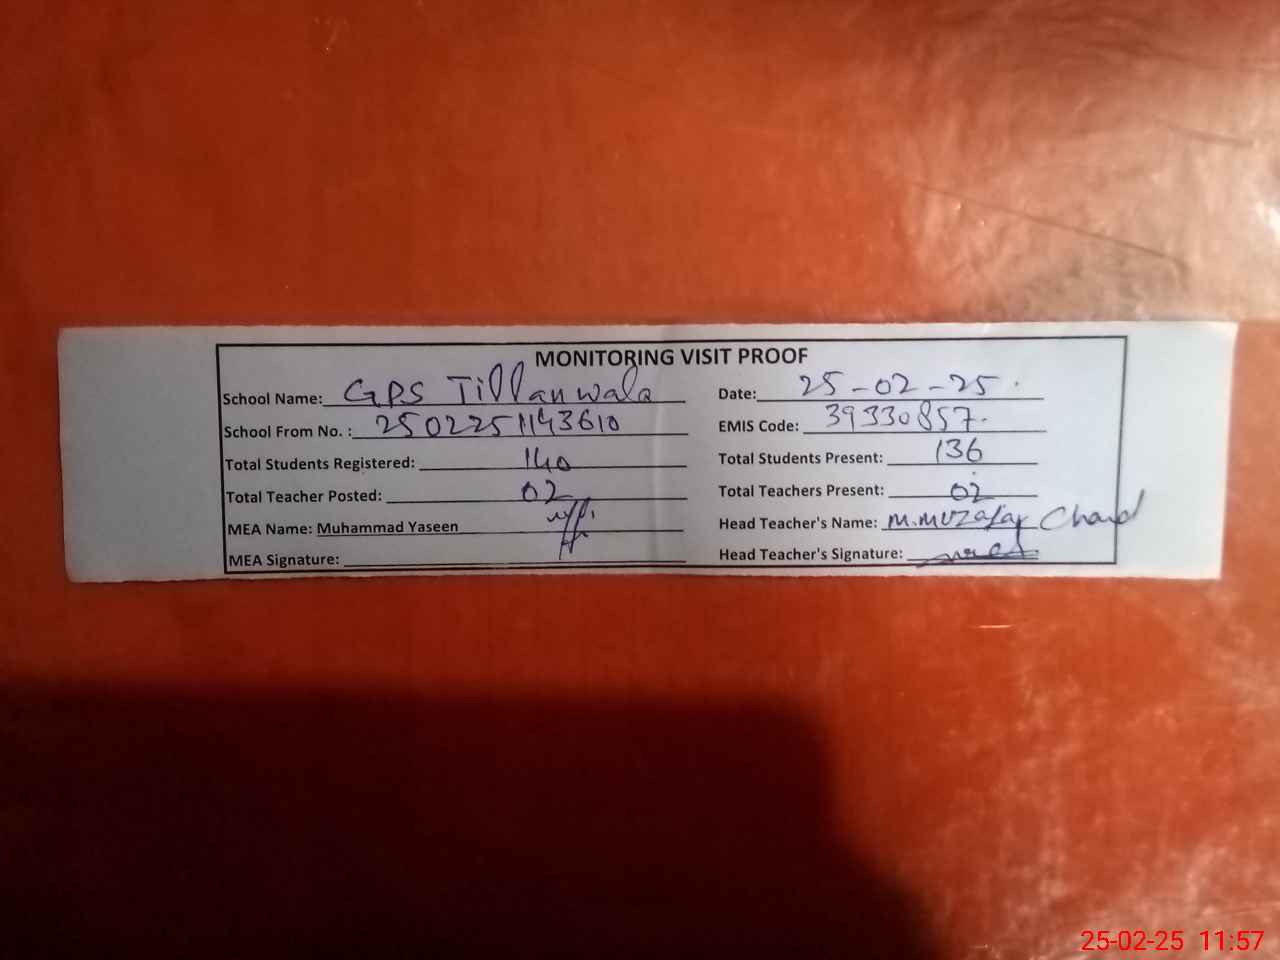 MONITORING VISIT PROOF
School Name: GPS Tillanwala Date: 25-02-25
School From No. : 2502251143610 EMIS Code: 39330857
Total Students Registered: 140 Total Students Present: 136
Total Teacher Posted: 02 Total Teachers Present: 02
MEA Name: Muhammad Yaseen Head Teacher's Name: M.Muzafar Chand
MEA Signature: Head Teacher's Signature:
25-02-25 11:57